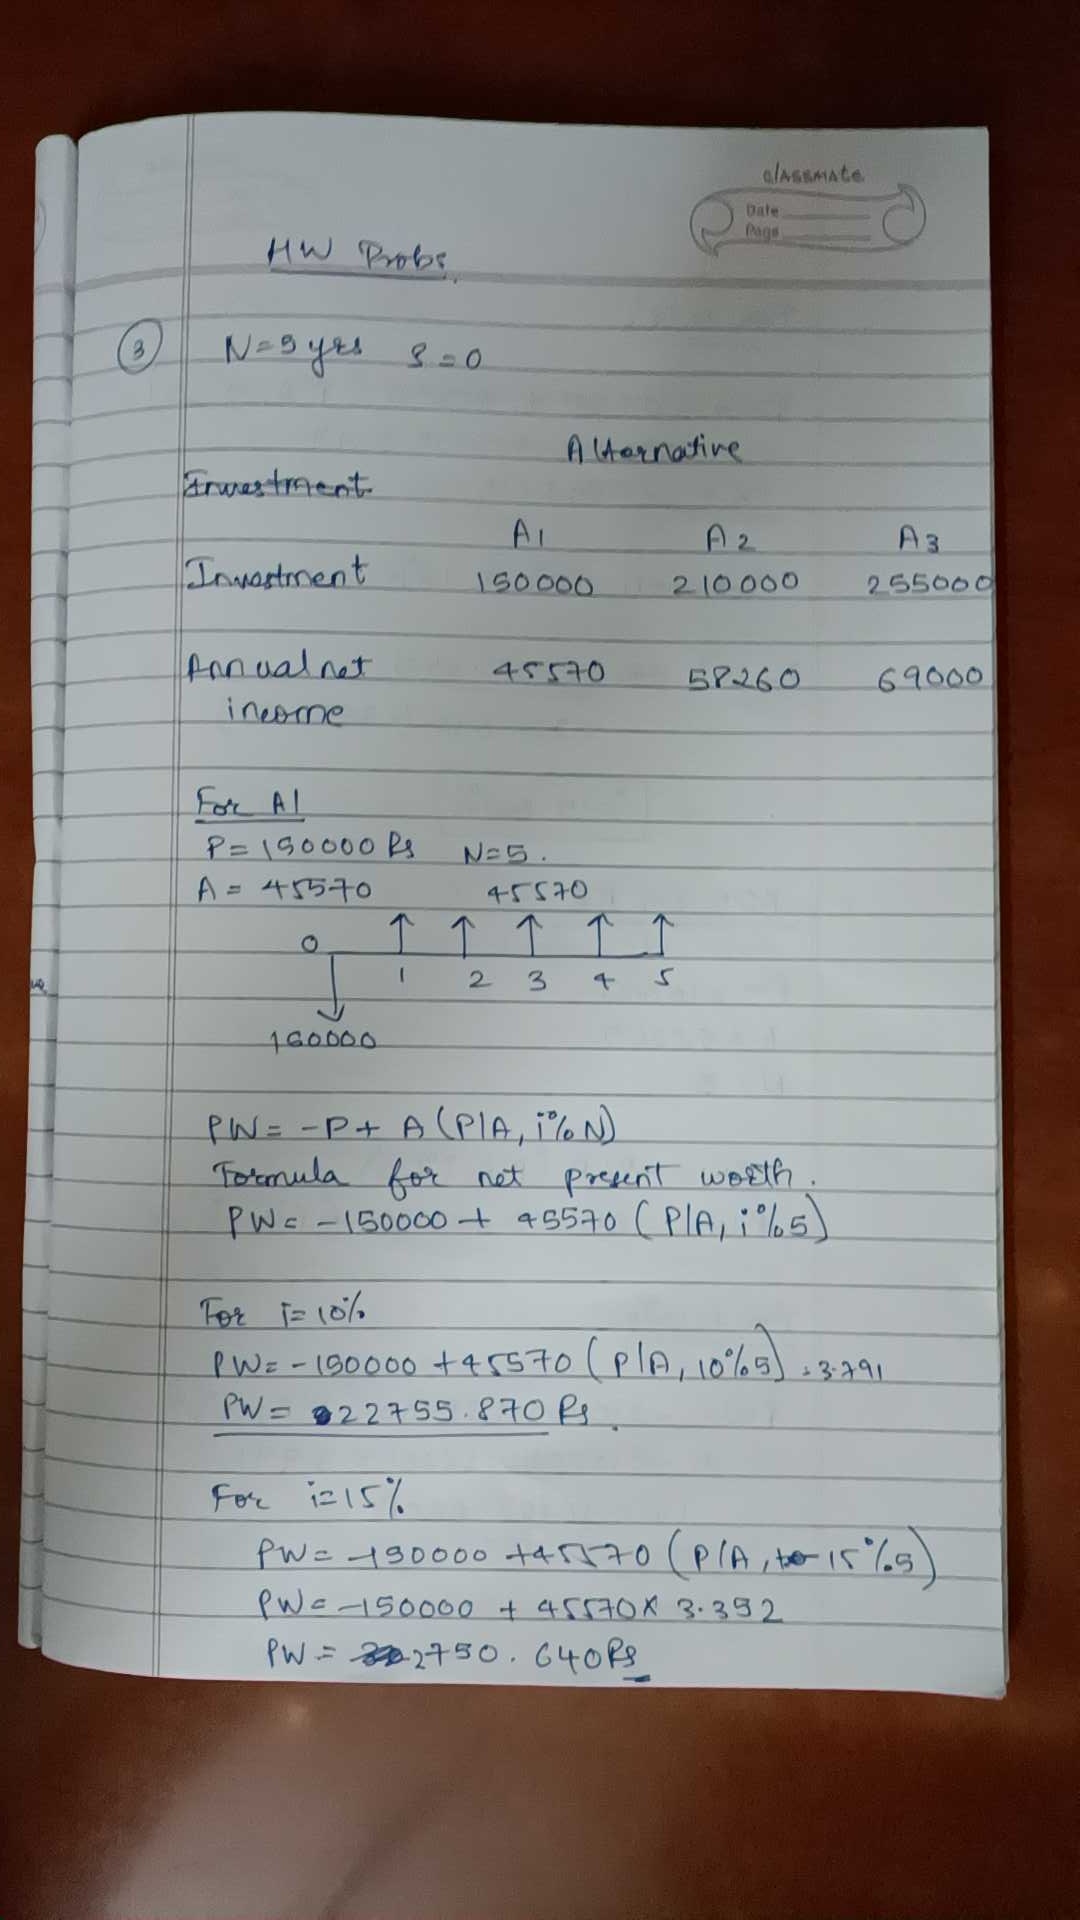 classmate
Date
Page
HW Probs.
3 N=5 yrs S=0
Alternative
Investment
A1 A2 A3
Investment 150000 210000 255000
Annual net 45570 58260 69000
income
For A1
P=150000 Rs N=5.
A = 45570 45570
0
1 2 3 4 5
150000
PW= -P+ A(P/A, i%N)
Formula for net present worth.
PW= -150000+ 45570 (P/A, i%5)
For i=10%
PW= -150000 +45570 (P/A, 10%5) =3.791
PW= 22755.870 Rs.
For i=15%
PW= -150000 +45570 (P/A, 15%5)
PW= -150000 + 45570 x 3.352
PW= 2750.640Rs